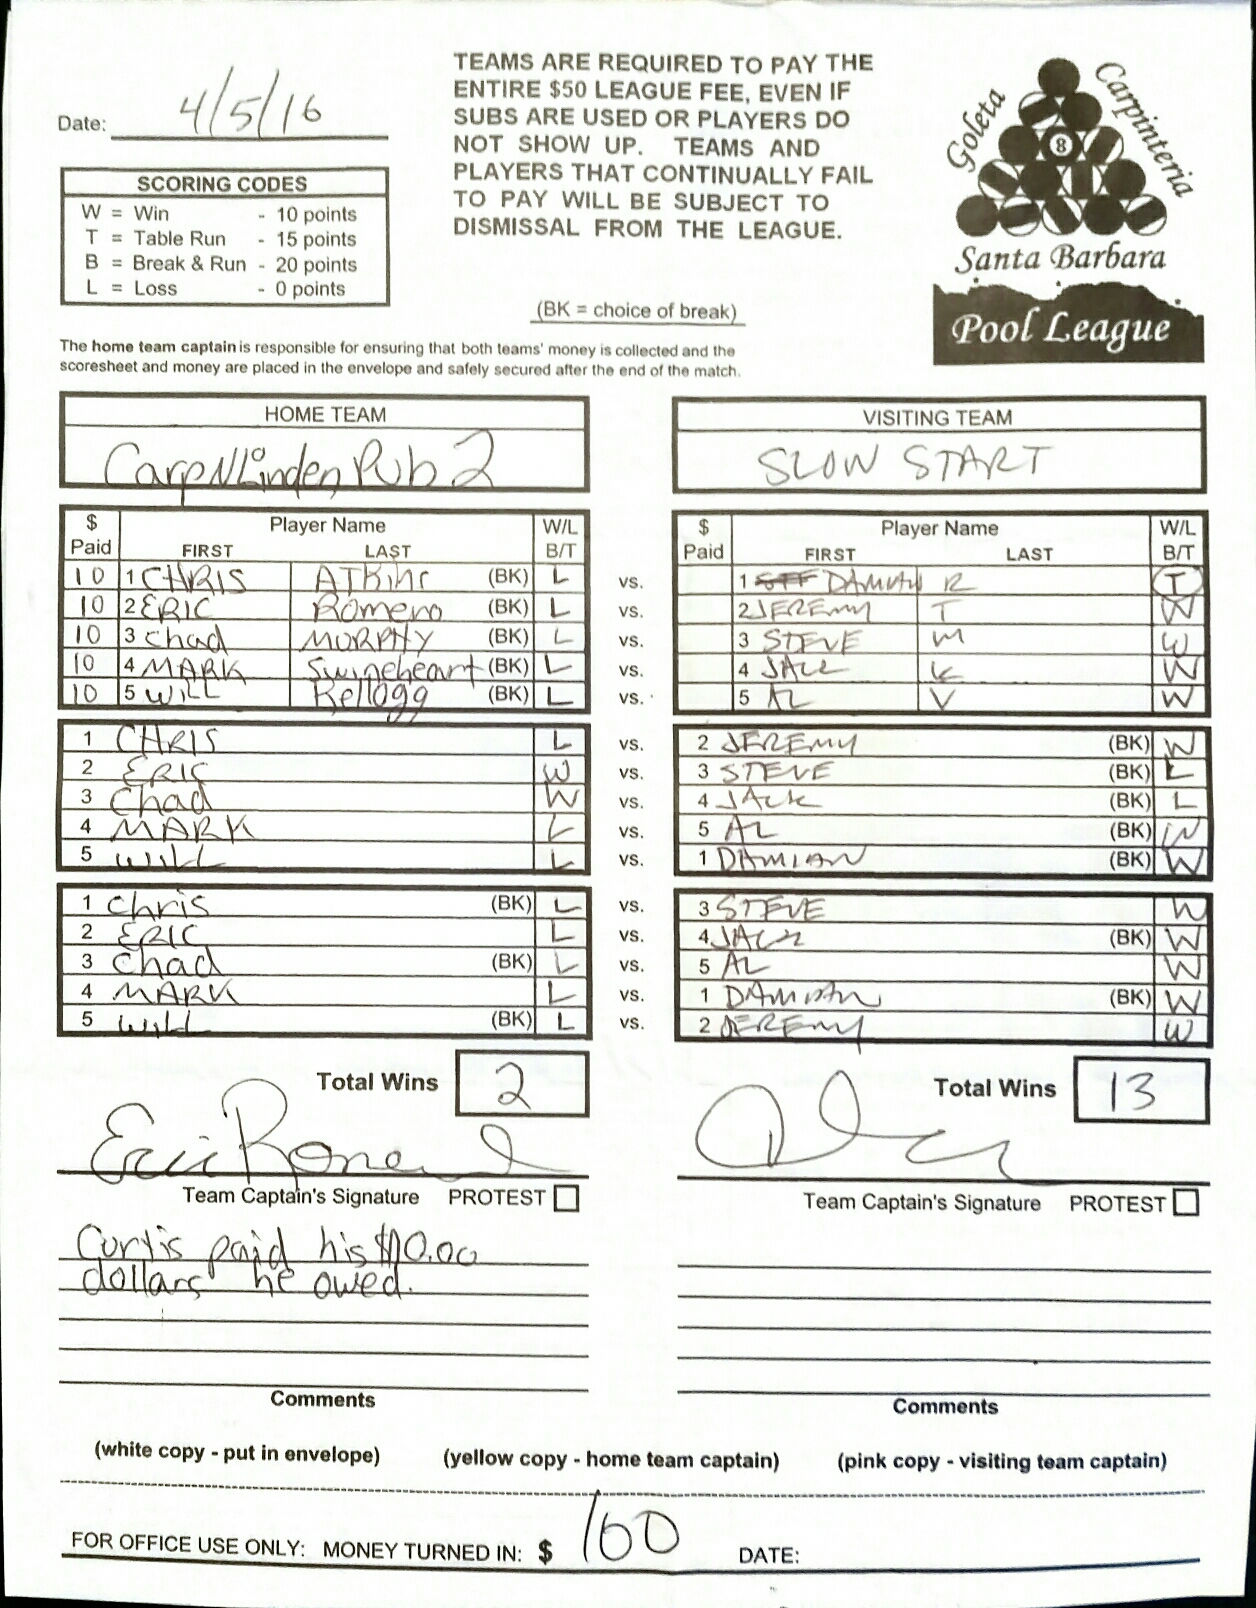 Date: 4/5/16
TEAMS ARE REQUIRED TO PAY THE
ENTIRE $50 LEAGUE FEE, EVEN IF
SUBS ARE USED OR PLAYERS DO
NOT SHOW UP. TEAMS AND
PLAYERS THAT CONTINUALLY FAIL
TO PAY WILL BE SUBJECT TO
DISMISSAL FROM THE LEAGUE.
Goleta
Carpinteria
8
Santa Barbara
Pool League
SCORING CODES
W = Win - 10 points
T = Table Run - 15 points
B = Break & Run - 20 points
L = Loss - 0 points
(BK = choice of break)
The home team captain is responsible for ensuring that both teams' money is collected and the
scoresheet and money are placed in the envelope and safely secured after the end of the match.
HOME TEAM VISITING TEAM
CarpNLinden Pub 2 SLOW START
$ Paid Player Name FIRST LAST W/L B/T $ Paid Player Name FIRST LAST W/L B/T
10 1 CHRIS ATKINS (BK) L vs. 1 DAMIAN R T
10 2 ERIC Romero (BK) L vs. 2 JEREMY T W
10 3 Chad MURPHY (BK) L vs. 3 STEVE M W
10 4 MARK Swineheart (BK) L vs. 4 JACK K W
10 5 WILL Kellogg (BK) L vs. 5 AL V W
1 CHRIS L vs. 2 JEREMY (BK) W
2 ERIC W vs. 3 STEVE (BK) L
3 Chad W vs. 4 JACK (BK) L
4 MARK L vs. 5 AL (BK) W
5 WILL L vs. 1 DAMIAN (BK) W
1 Chris (BK) L vs. 3 STEVE W
2 ERIC L vs. 4 JACK (BK) W
3 Chad (BK) L vs. 5 AL W
4 MARK L vs. 1 DAMIAN (BK) W
5 WILL (BK) L vs. 2 JEREMY W
Total Wins 2 Total Wins 13
Eric Romero
Team Captain's Signature PROTEST Team Captain's Signature PROTEST
Curtis paid his $10.00
dollars he owed.
Comments Comments
(white copy - put in envelope) (yellow copy - home team captain) (pink copy - visiting team captain)
FOR OFFICE USE ONLY: MONEY TURNED IN: $ 160 DATE: